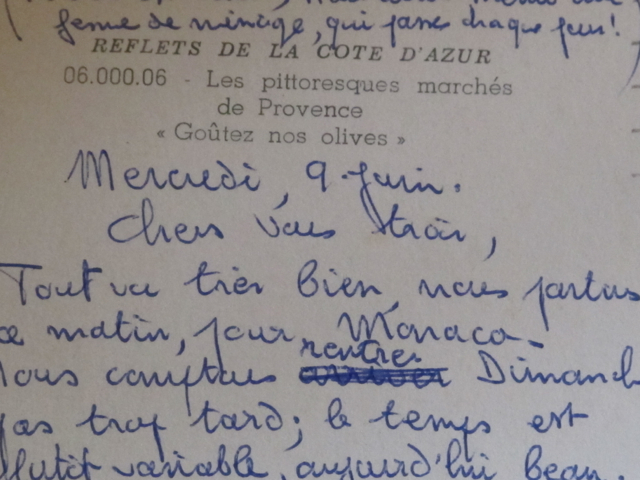 femme de ménage, qui passe chaque jour!
REFLETS DE LA COTE D'AZUR
06.000.06 - Les pittoresques marchés
de Provence
« Goûtez nos olives »
Mercredi, 9 Juin.
Chers Vous trois,
Tout va très bien, nous partons
ce matin, pour Monaco.
rentrer
Nous comptons Dimanch
pas trop tard; le temps est
plutôt variable, aujourd'hui beau.